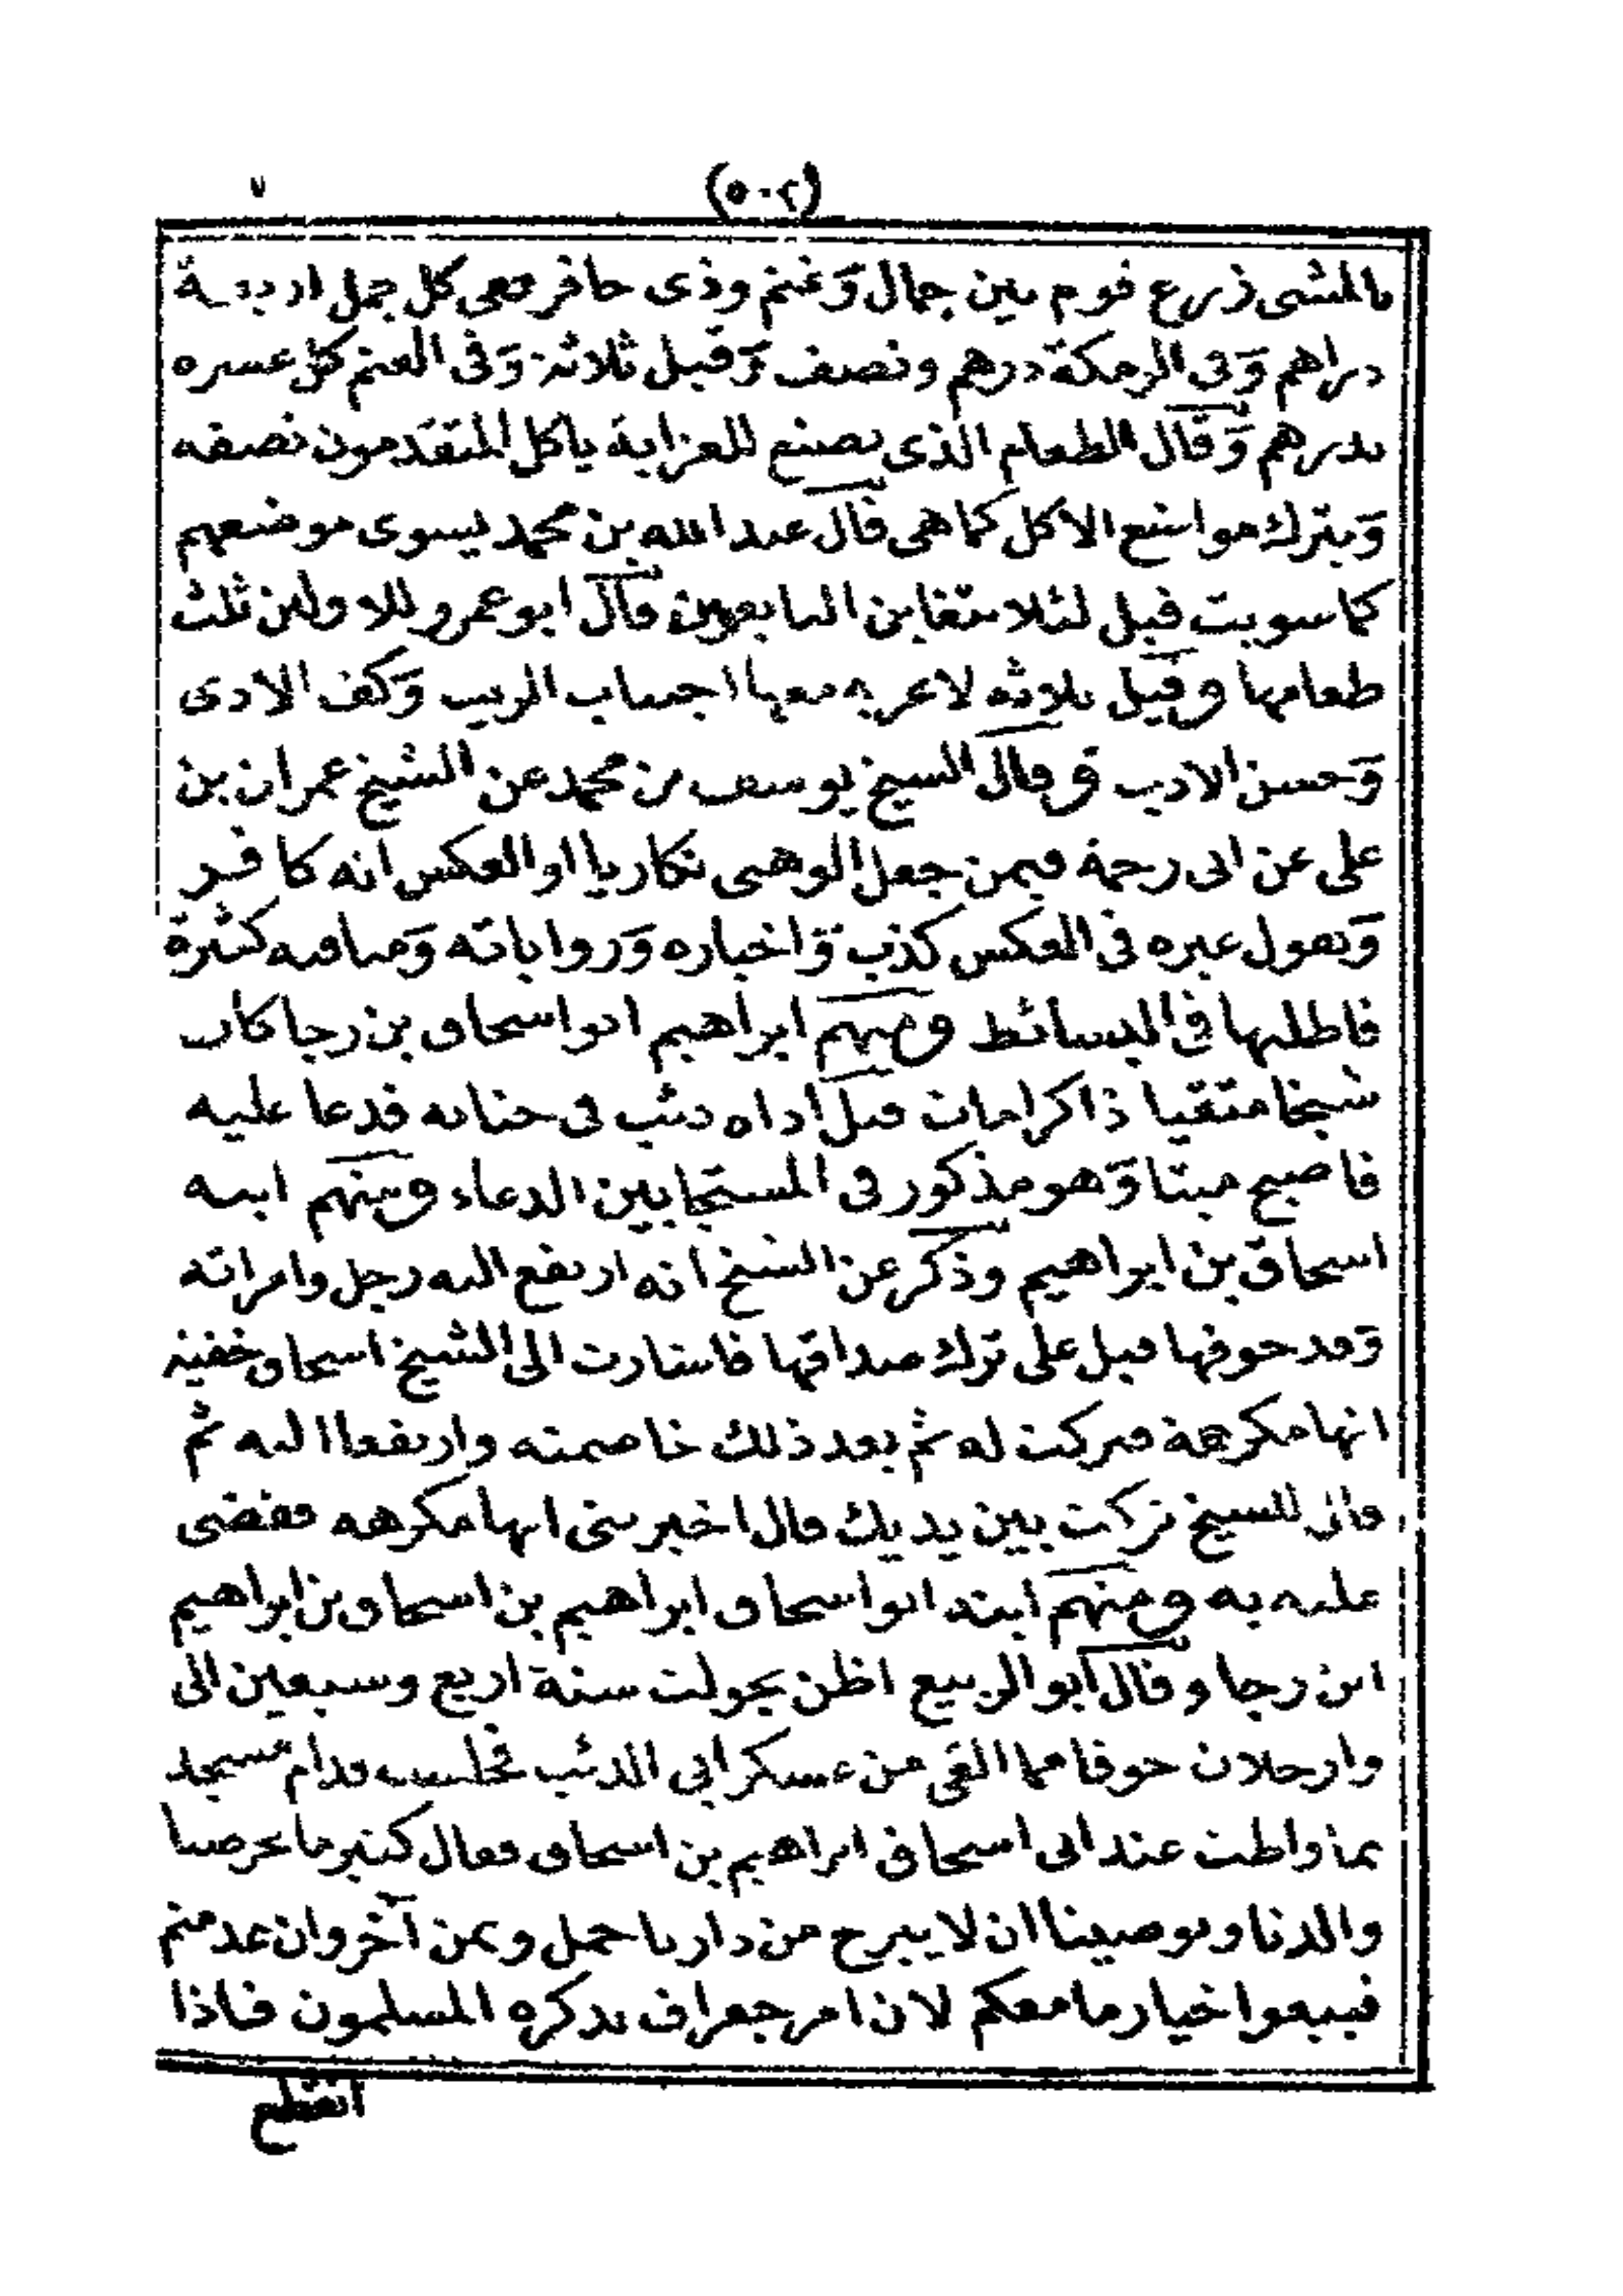 (٥٠٢)
٧
بالمشى ذرع قوم بين جمال وغنم وذى حافر ففى كل جمل اربعة
دراهم وفى الرمكة درهم ونصف وقيل ثلاثة وفى الغنم كل عشرة
بدرهم وقال الطعام الذى يصنع للعزابة ياكل المتقدمون نصفه
ويترك مواضع الاكل كما هى قال عبد الله بن محمد يسوى موضعهم
كما سويت قبل لئلا يتغابن التابعون قال ابو عمرو للاولين ثلث
طعامها وقيل ثلاثة لا غربة معها اجتناب الريب وكف الاذى
وحسن الادب وقال الشيخ يوسف بن محمد عن الشيخ عمران بن
على عن ابى رحمة فيمن جعل الوهبى نكاريا او العكس انه كافر
ويقول غيره فى العكس كذب واخباره ورواياته ومناقبه كثيرة
فاطلبها فى البسائط ومنهم ابراهيم ابو اسحاق بن رجا كان
شيخا متقيا ذا كرامات قيل اذاه ذئب فى جنانه فدعا عليه
فاصبح ميتا وهو مذكور فى المستجابين الدعاء ومنهم ابنه
اسحاق بن ابراهيم وذكر عن الشيخ انه ارتفع اليه رجل وامراته
وقد خوفها قبل على ترك صداقها فاشارت الى الشيخ اسحاق خفية
انها مكرهة فتركت له ثم بعد ذلك خاصمته وارتفعا اليه ثم
قال للشيخ تركت بين يديك قال اخبرتنى انها مكرهة فقضى
عليه به ومنهم ابنه ابو اسحاق ابراهيم بن اسحاق بن ابراهيم
ابن رجا وقال ابو الربيع اظن تحولت سنة اربع وسبعين الى
وارجلان خوفا مما القى من عسكر ابى الذئب فجلست قدام مسجد
تماواطت عند ابى اسحاق ابراهيم بن اسحاق فقال كثير ما يحرصنا
والدنا ويوصينا ان لا يبرح من دارنا حمل وتمن آخر وان عدمتم
فبيعوا خيار ما معكم لان امر جعراف يذكره المسلمون فاذا
انقطع